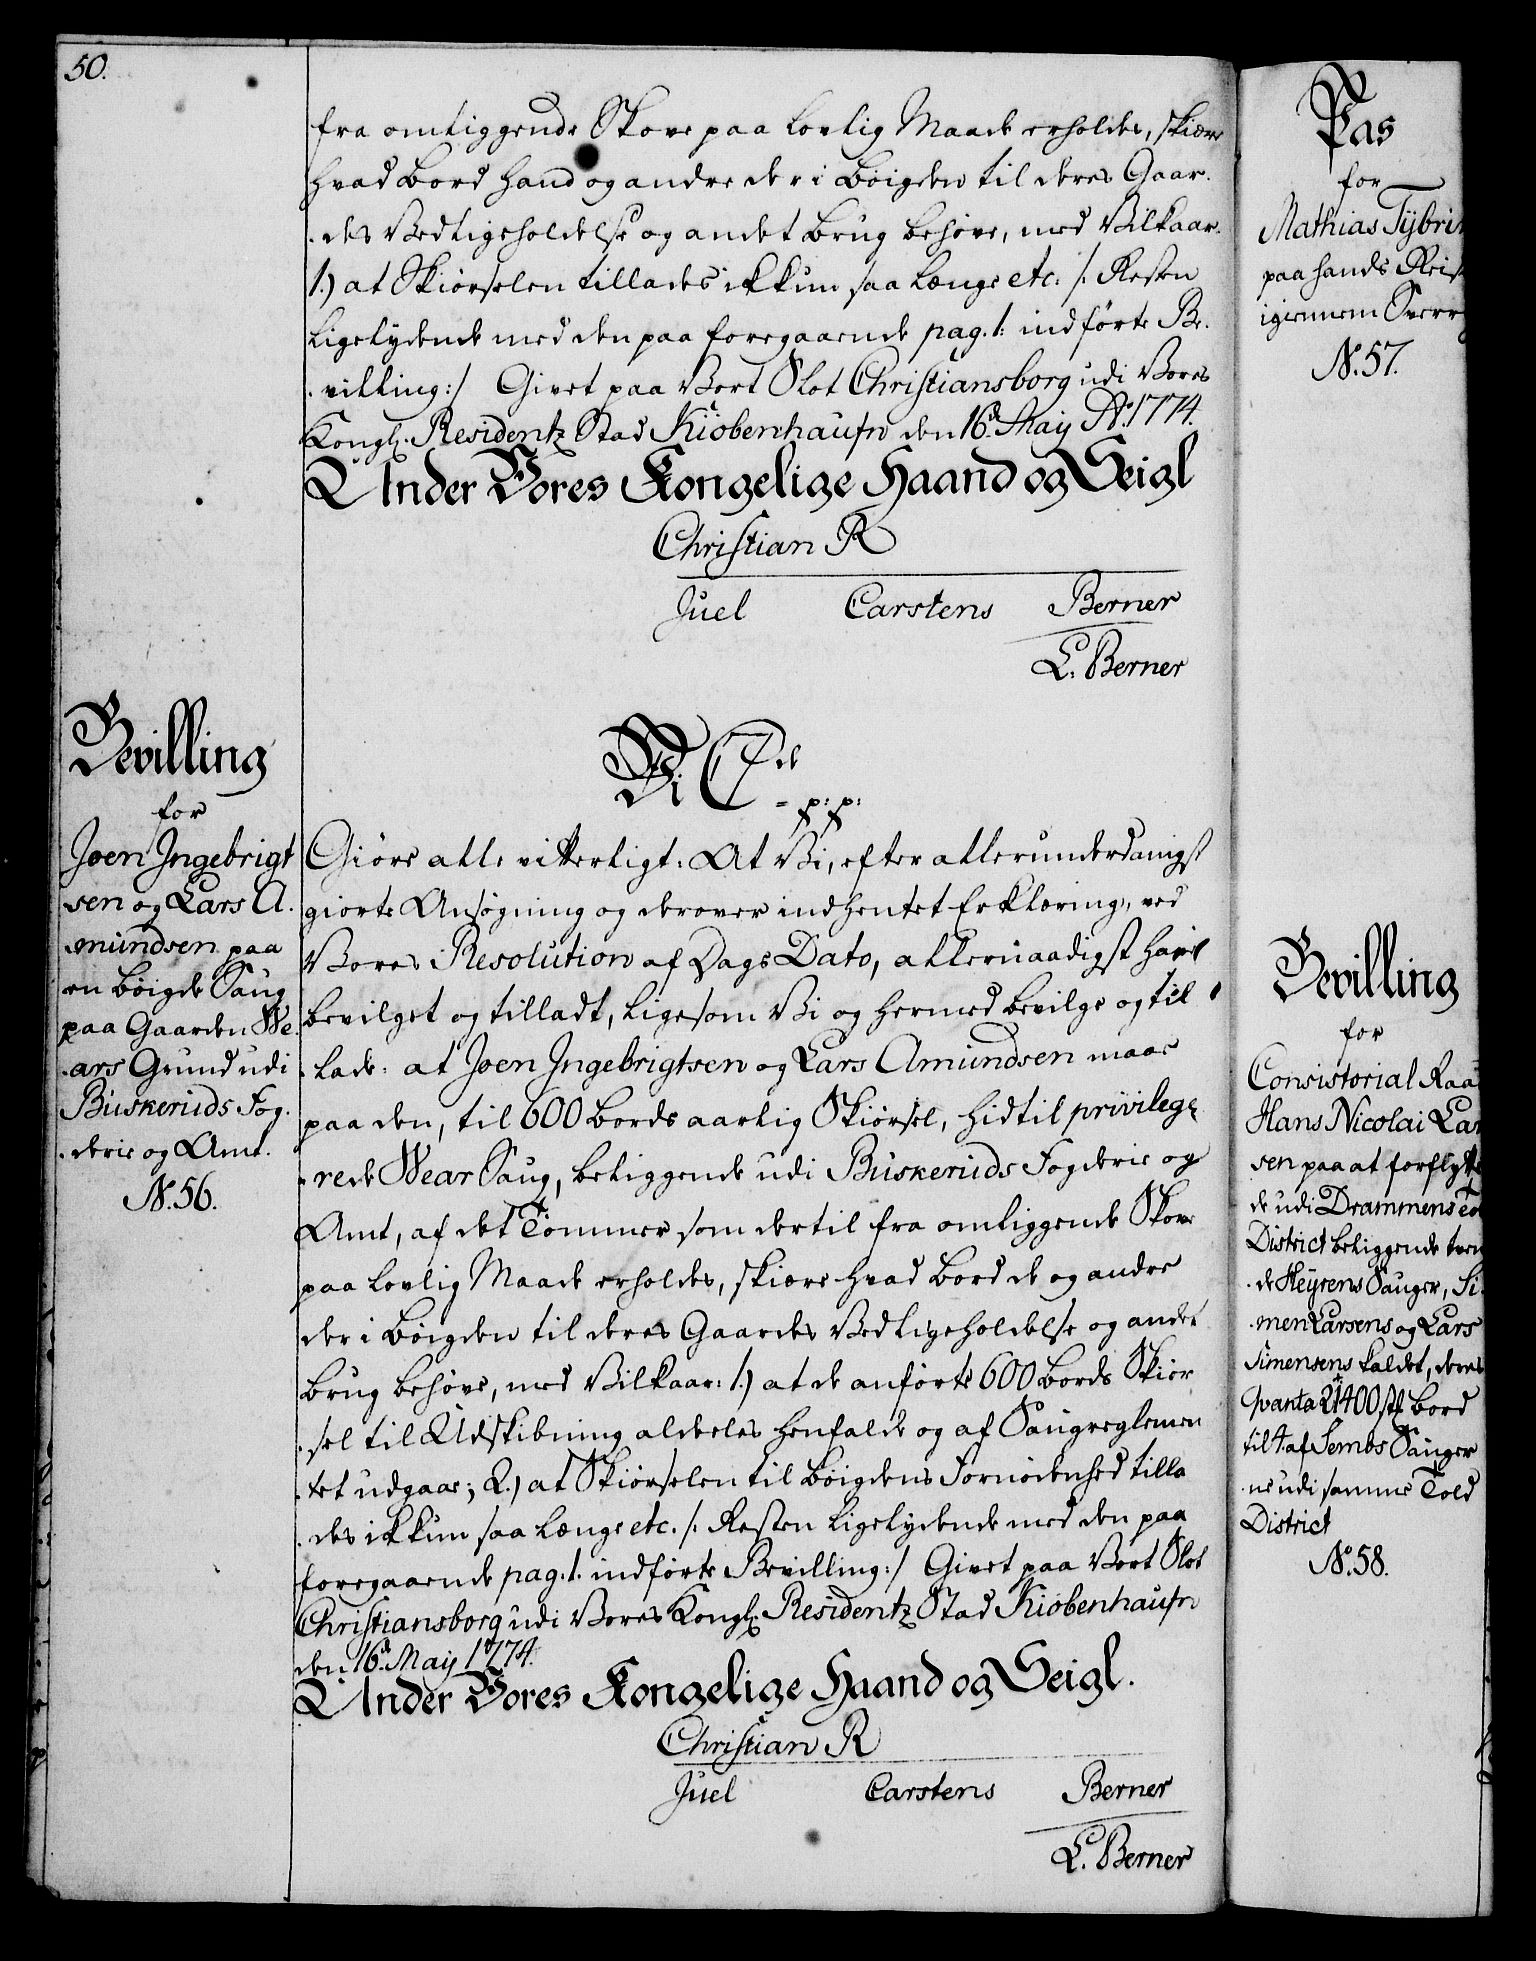 50.
fra omliggende Skove paa lovlig Maade erholdes, skiære
hvad Bord hand og andre der i Bøigden til deres Gaar-
des Vedligeholdelse og andet Brug behøve, med Vilkaar.
1.) at Skiørselen tillades ikkun saa længe etc: /: Resten
ligelydende med den paa foregaaende pag. 1. indførte Be-
villing :/ Givet paa Vort Slot Christiansborg udi Vores
Kongl. Residentz Stad Kiöbenhaufn den 16d. Maij Ao. 1774.
Under Vores Kongelige Haand og Seigl
Christian R
Juel Carstens Berner
L. Berner
Bevilling
for
Joen Ingebrigt
sen og Lars A.
mundsen paa
en Bøigde Saug
paa Gaarden We-
ars Grund udi
Buskeruds Fog-
derie og Amt.
N. 56.
Vi C 7de
p: p:
Giøre alle vitterligt: At Vi, efter allerunderdanigst
giorte Ansøgning og derover indhentet Erklæring, ved
Vores Resolution af Dags Dato, allernaadigst have
bevilget og tilladt, ligesom Vi og hermed bevilge og til
lade: at Joen Ingebrigtsen og Lars Amundsen maae
paa den, til 600 Bords aarlig Skiørsel, hidtil privilege
rede Wear Saug, beliggende udi Buskeruds Fogderie og
Amt, af det Tømmer som dertil fra omliggende Skove
paa lovlig Maade erholdes, skiære hvad Bord de og andre
der i Bøigden til deres Gaardes Vedligeholdelse og andet
Brug behøve, med Vilkaar: 1.) at de anførte 600 Bords Skiør
sel til Udskibning aldeeles henfalde og af Saugreglemen
tet udgaae; 2.) at Skiørselen til Bøigdens Fornødenhed tilla
des ikkun saa længe etc. /: Resten ligelydende med den paa
foregaaende pag. 1. indførte Bevilling :/ Givet paa Vort Slot
Christiansborg udi Vores Kongl. Residentz Stad Kiöbenhaufn
den 16d. Maij 1774.
Under Vores Kongelige Haand og Seigl.
Christian R
Juel Carstens Berner
L. Berner
Pas
for
Mathias Tybrin
paa hands Reise
igiennem Sverrig
N. 57.
Bevilling
for
Consistorial Raa
Hans Nicolai Lar
sen paa at forflytte
de udi Drammens To
District beliggende tven
de Heyrens Sauger, Si-
men Larsens og Lars
Simensens kaldet, deres
Qvanta 21400 st. Bord
til 4 af Sembs Sauger
ne udi samme Told
District
N. 58.